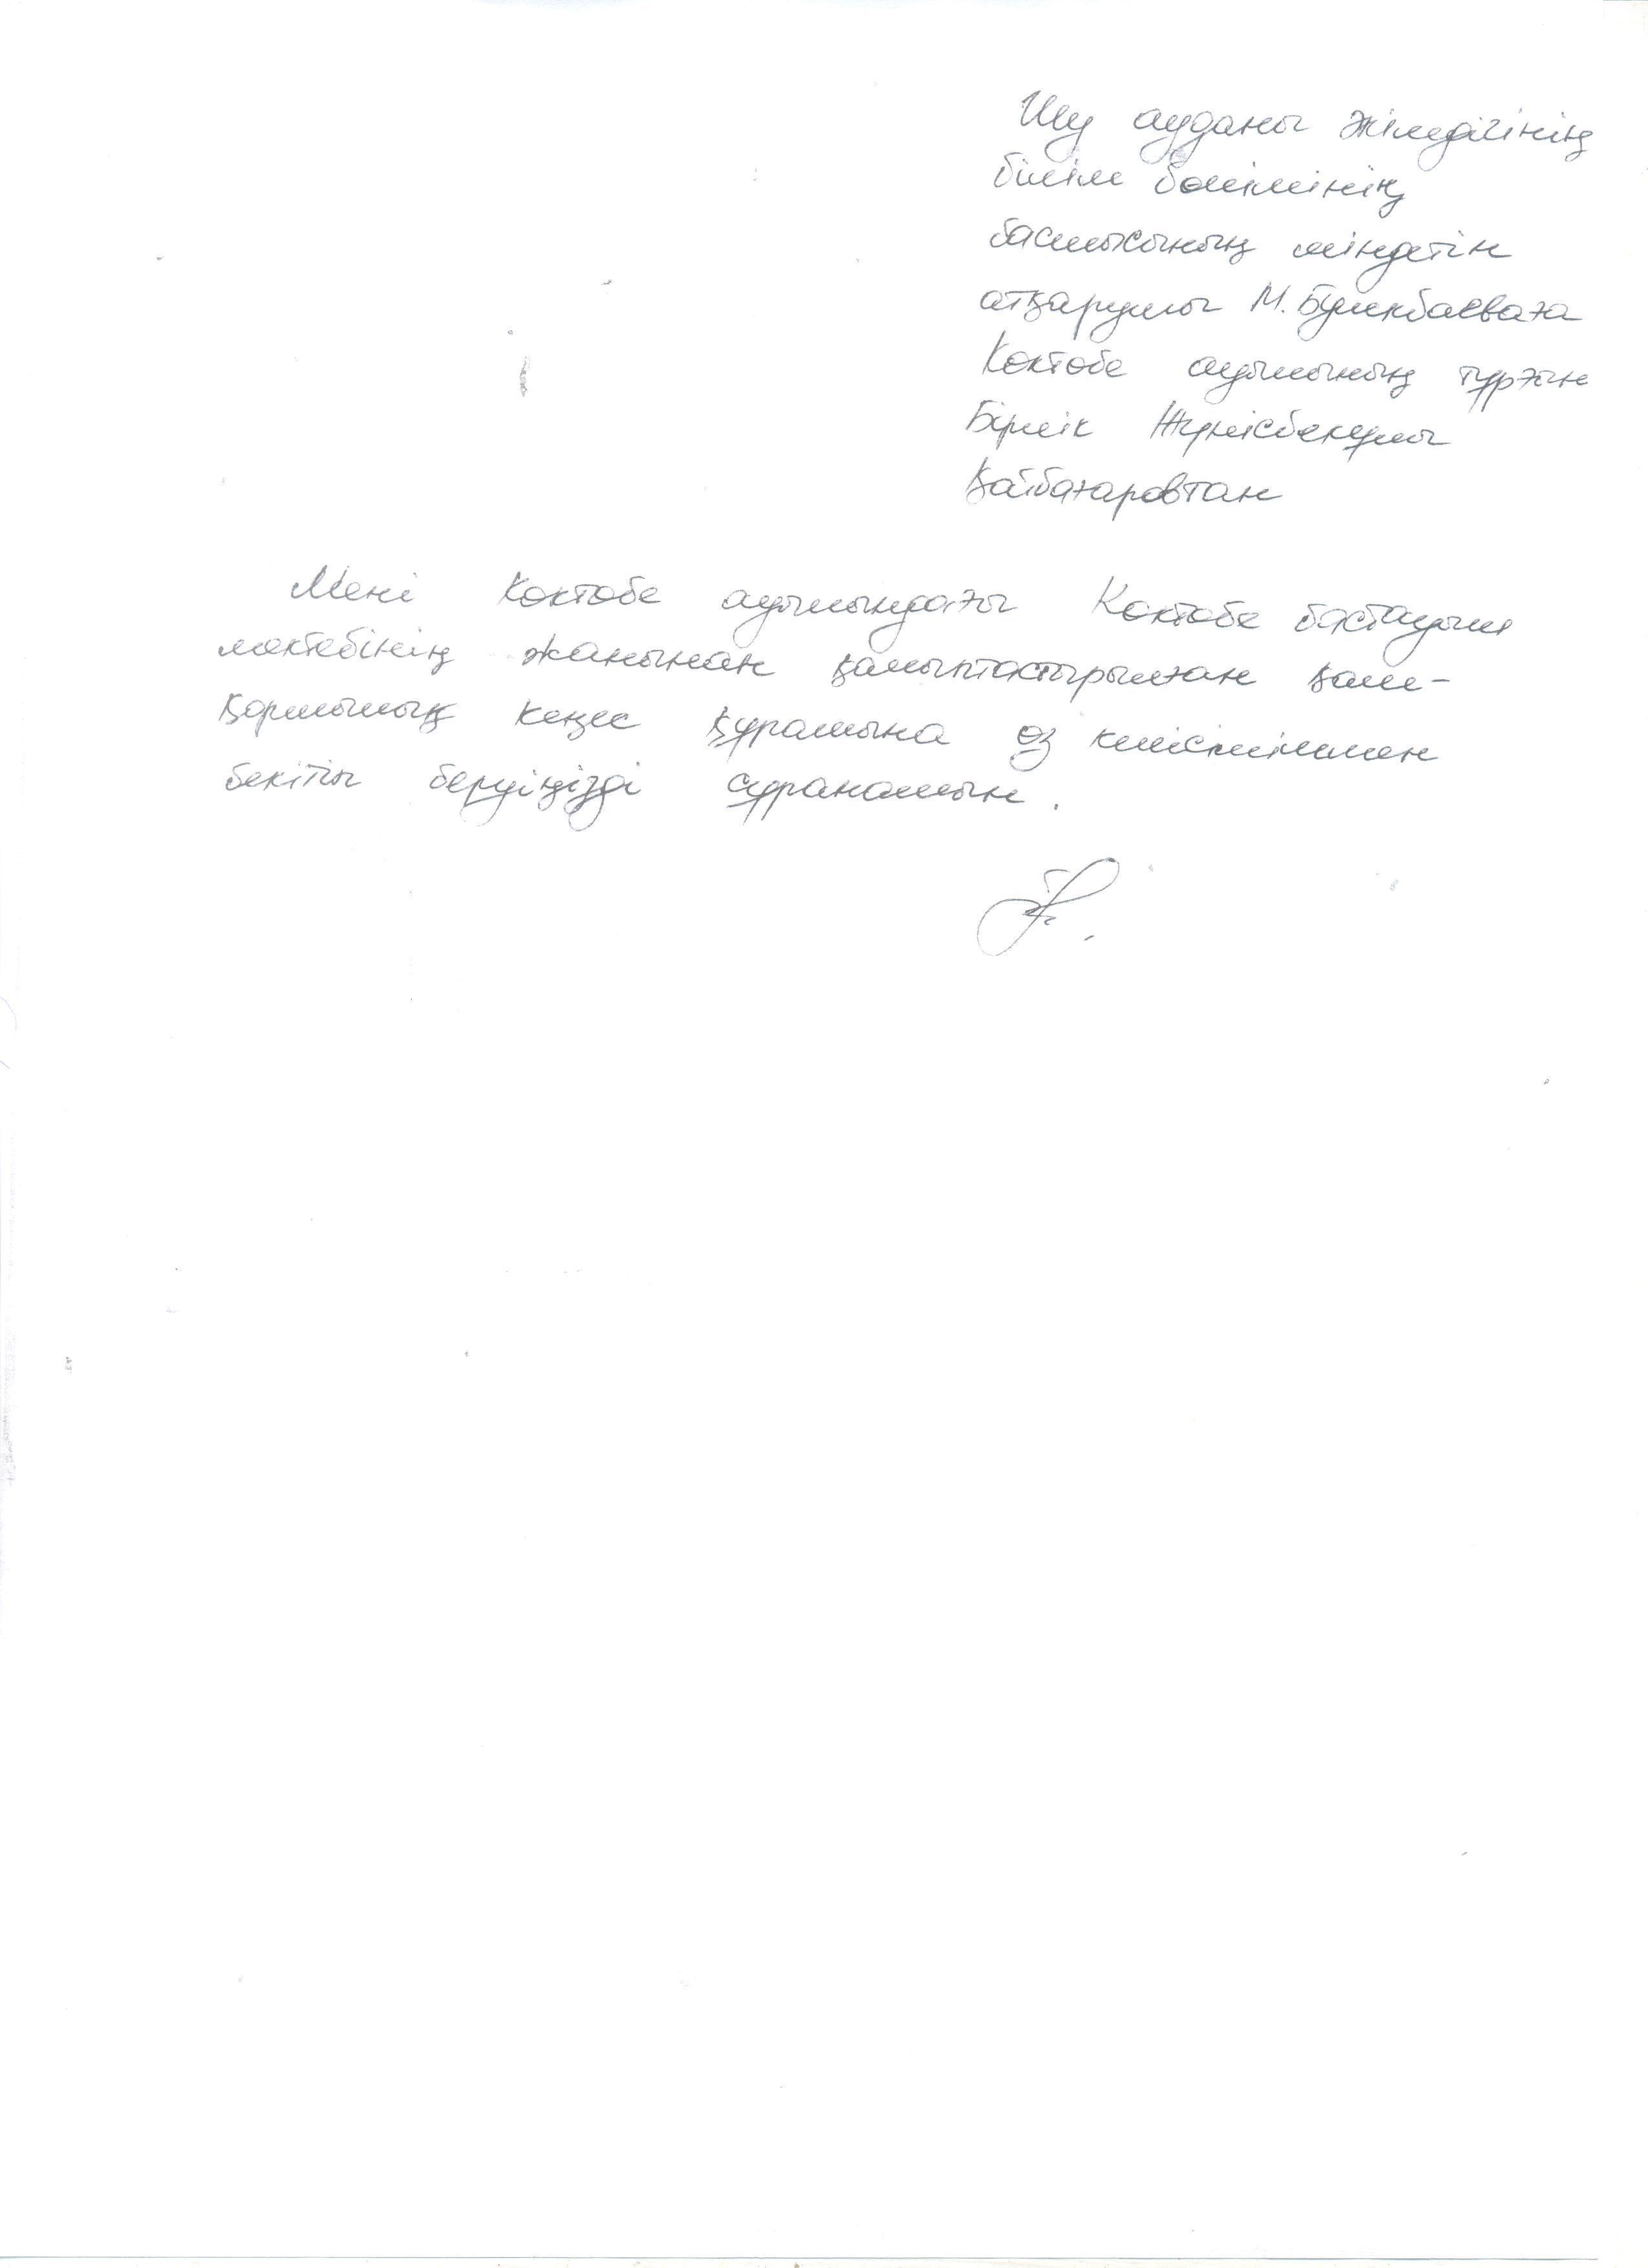 Шу ауданы әкімдігінің
білім бөлімінің
басшысының міндетін
атқарушы М. Бүлекбаеваға
Көктөбе ауылының тұрғын
Бірлік Жүнісбекұлы
Қайбағаровтан
Мені Көктөбе ауылындағы Көктөбе бастауыш
мектебінің жанынан қалыптастырылған қам-
қоршылық кеңес құрамына өз келісімімен
бекітіп беруіңізді сұранамын.